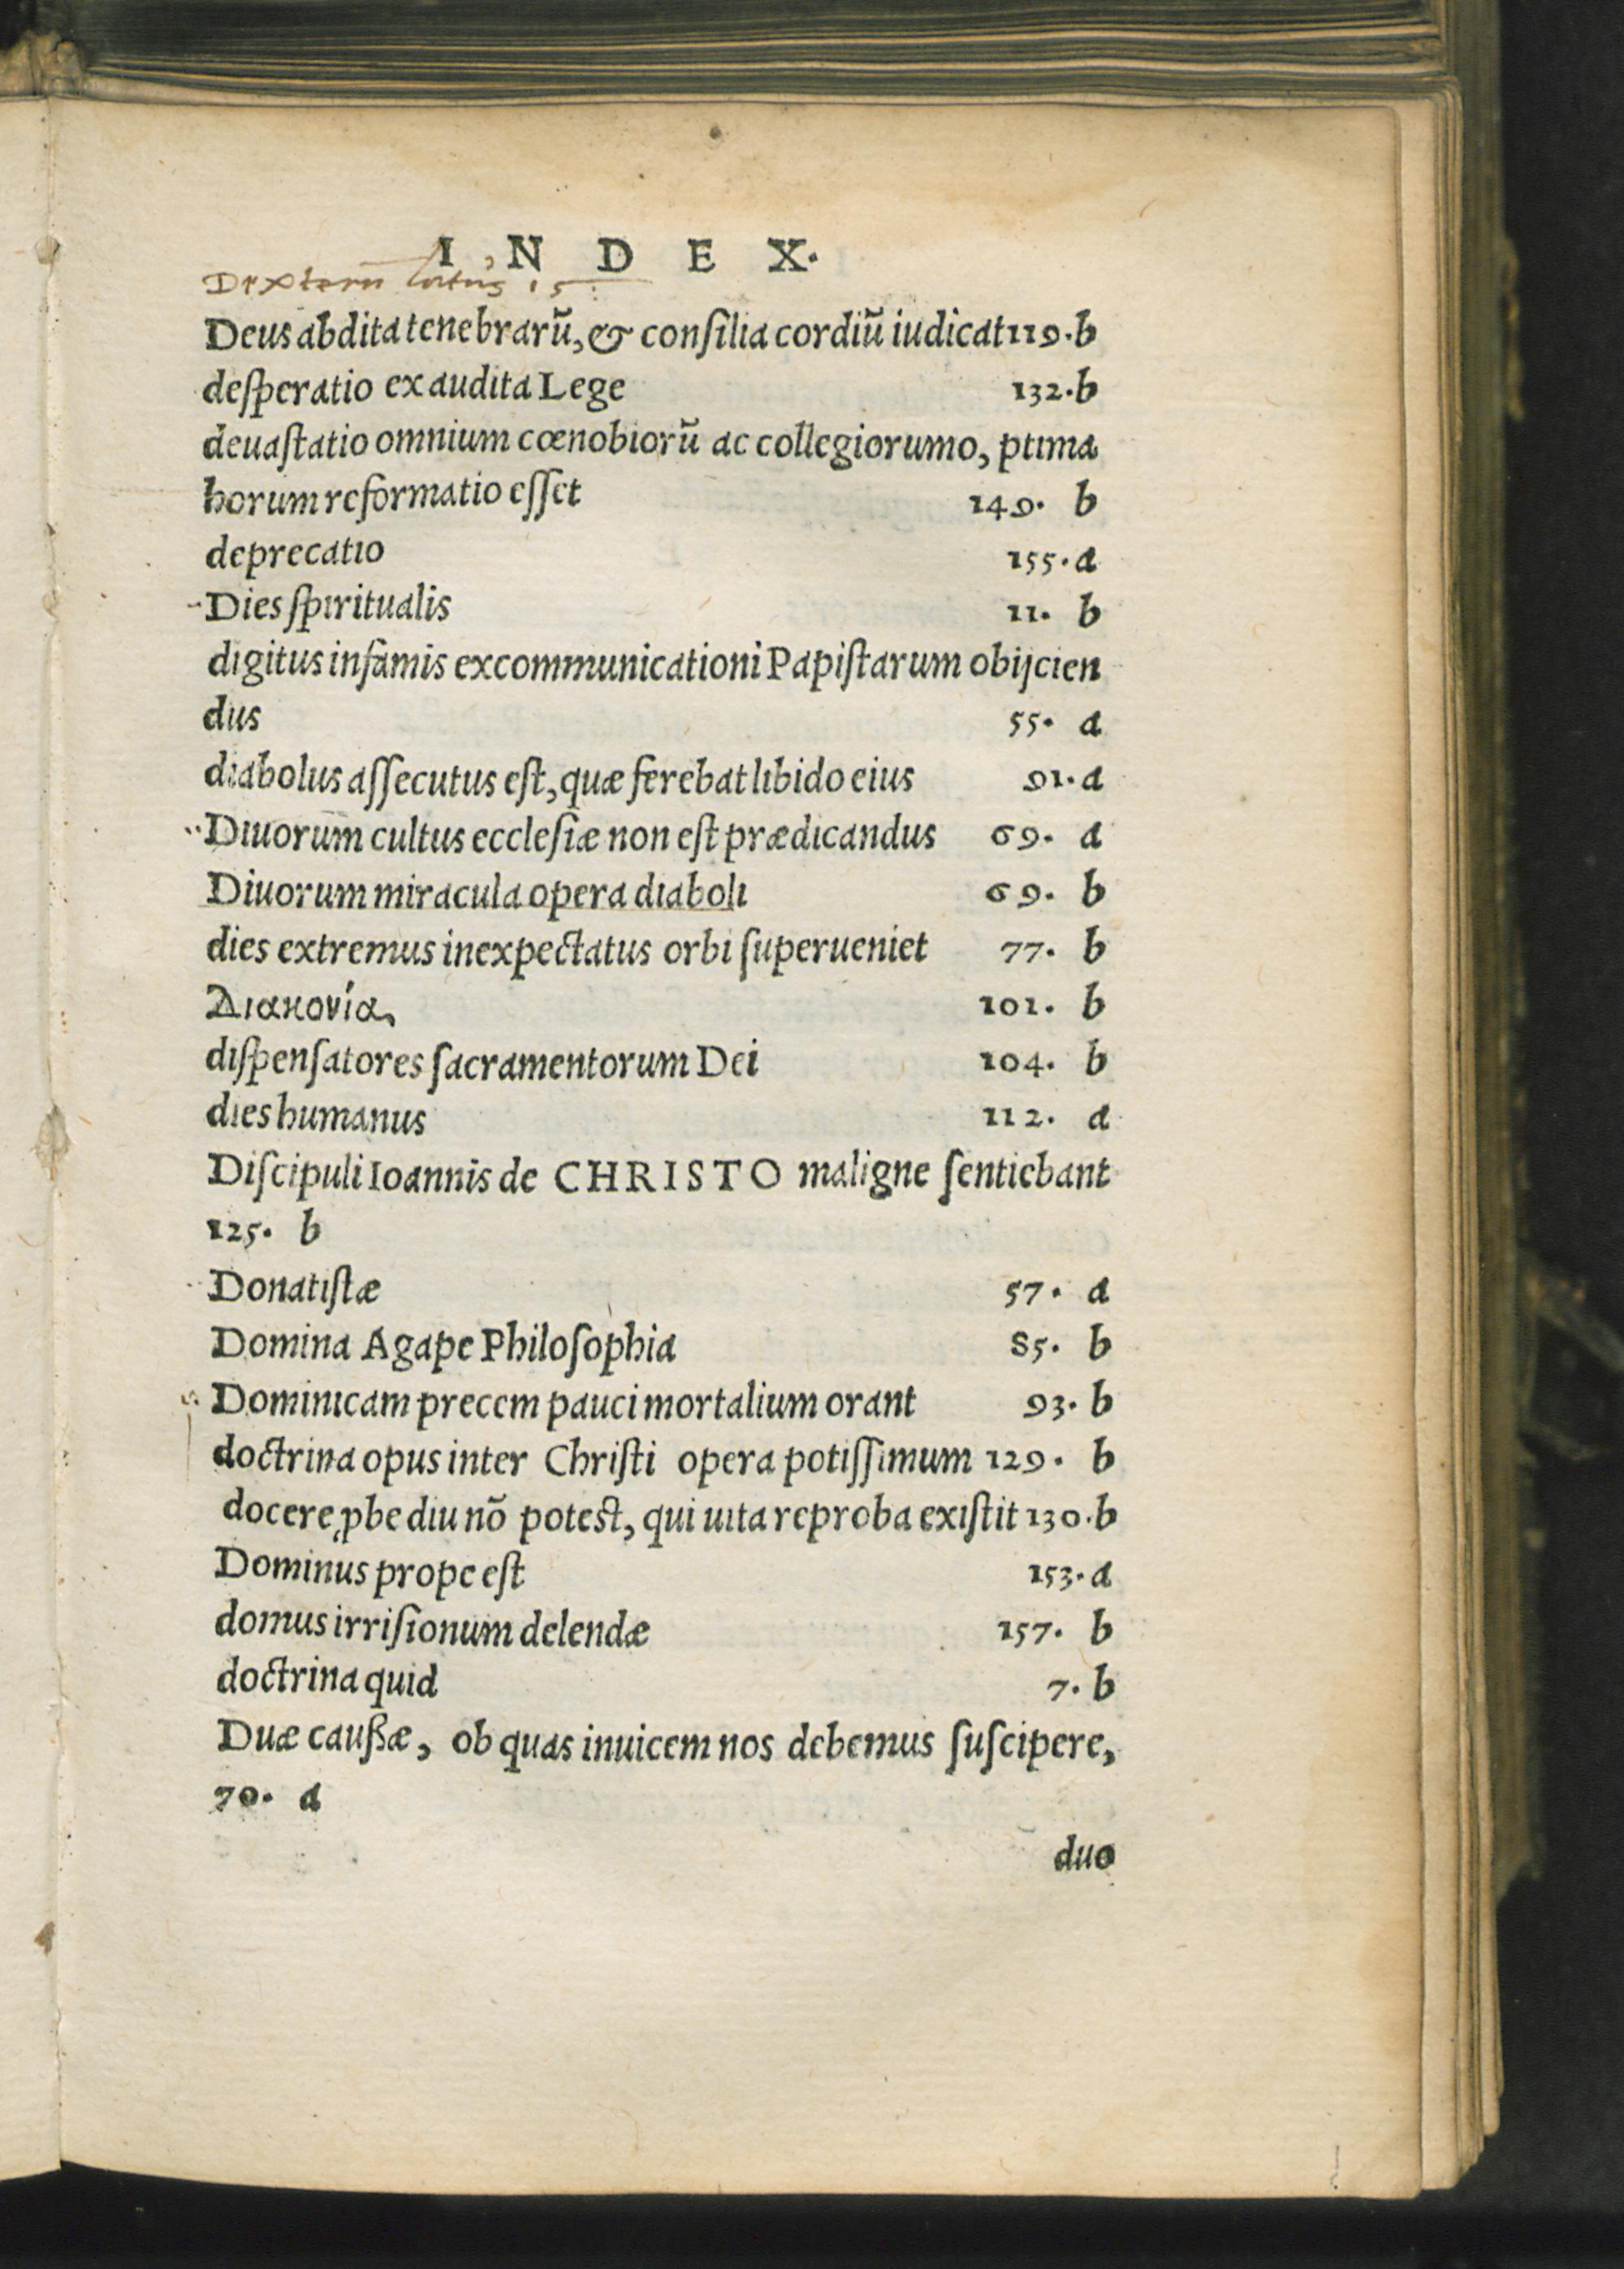 I N D E X.
Dexterũ latus 15
Deus abdita tenebrarũ, & consilia cordiũ iudicat 119.b
deſperatio ex audita Lege 132.b
deuaſtatio omnium cœnobiorũ ac collegiorumo, ptima
horum reformatio eſſet 149. b
deprecatio 155.a
Dies ſpiritualis 11. b
digitus infamis excommunicationi Papiſtarum obijcien
dus 55. a
diabolus aſſecutus eſt, quæ ferebat libido eius 91.a
Diuorum cultus eccleſiæ non eſt prædicandus 69. a
Diuorum miracula opera diaboli 69. b
dies extremus inexpectatus orbi ſuperueniet 77. b
Διακονία, 101. b
diſpenſatores ſacramentorum Dei 104. b
dies humanus 112. a
Diſcipuli Ioannis de CHRISTO maligne ſentiebant
125. b
Donatiſtæ 57. a
Domina Agape Philoſophia 85. b
Dominicam precem pauci mortalium orant 93.b
doctrina opus inter Chriſti opera potiſſimum 129. b
docere ꝓbe diu nõ poteſt, qui uita reproba exiſtit 130.b
Dominus prope eſt 153.a
domus irriſionum delendæ 157. b
doctrina quid 7.b
Duæ cauſſæ, ob quas inuicem nos debemus ſuſcipere,
70. a
duo